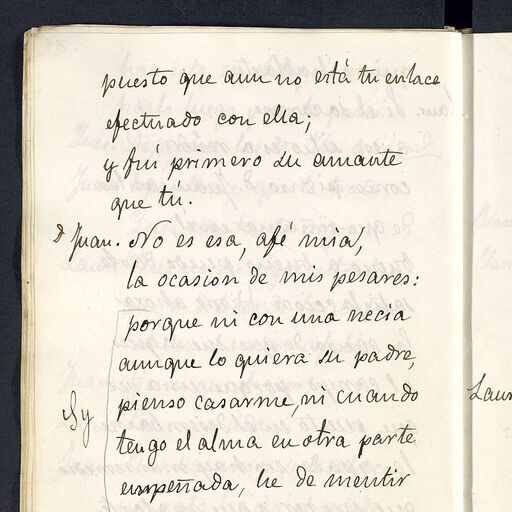 puesto que aun no está tu enlace
efectuado con ella;
y fuí primero su amante
que tú.
D Juan. No es esa, afé mia,
la ocasion de mis pesares:
porque ni con una necia
aunque lo quiera su padre,
pienso casarme, ni cuando
Sy
tengo el alma en otra parte
empeñada, he de mentir
Laur